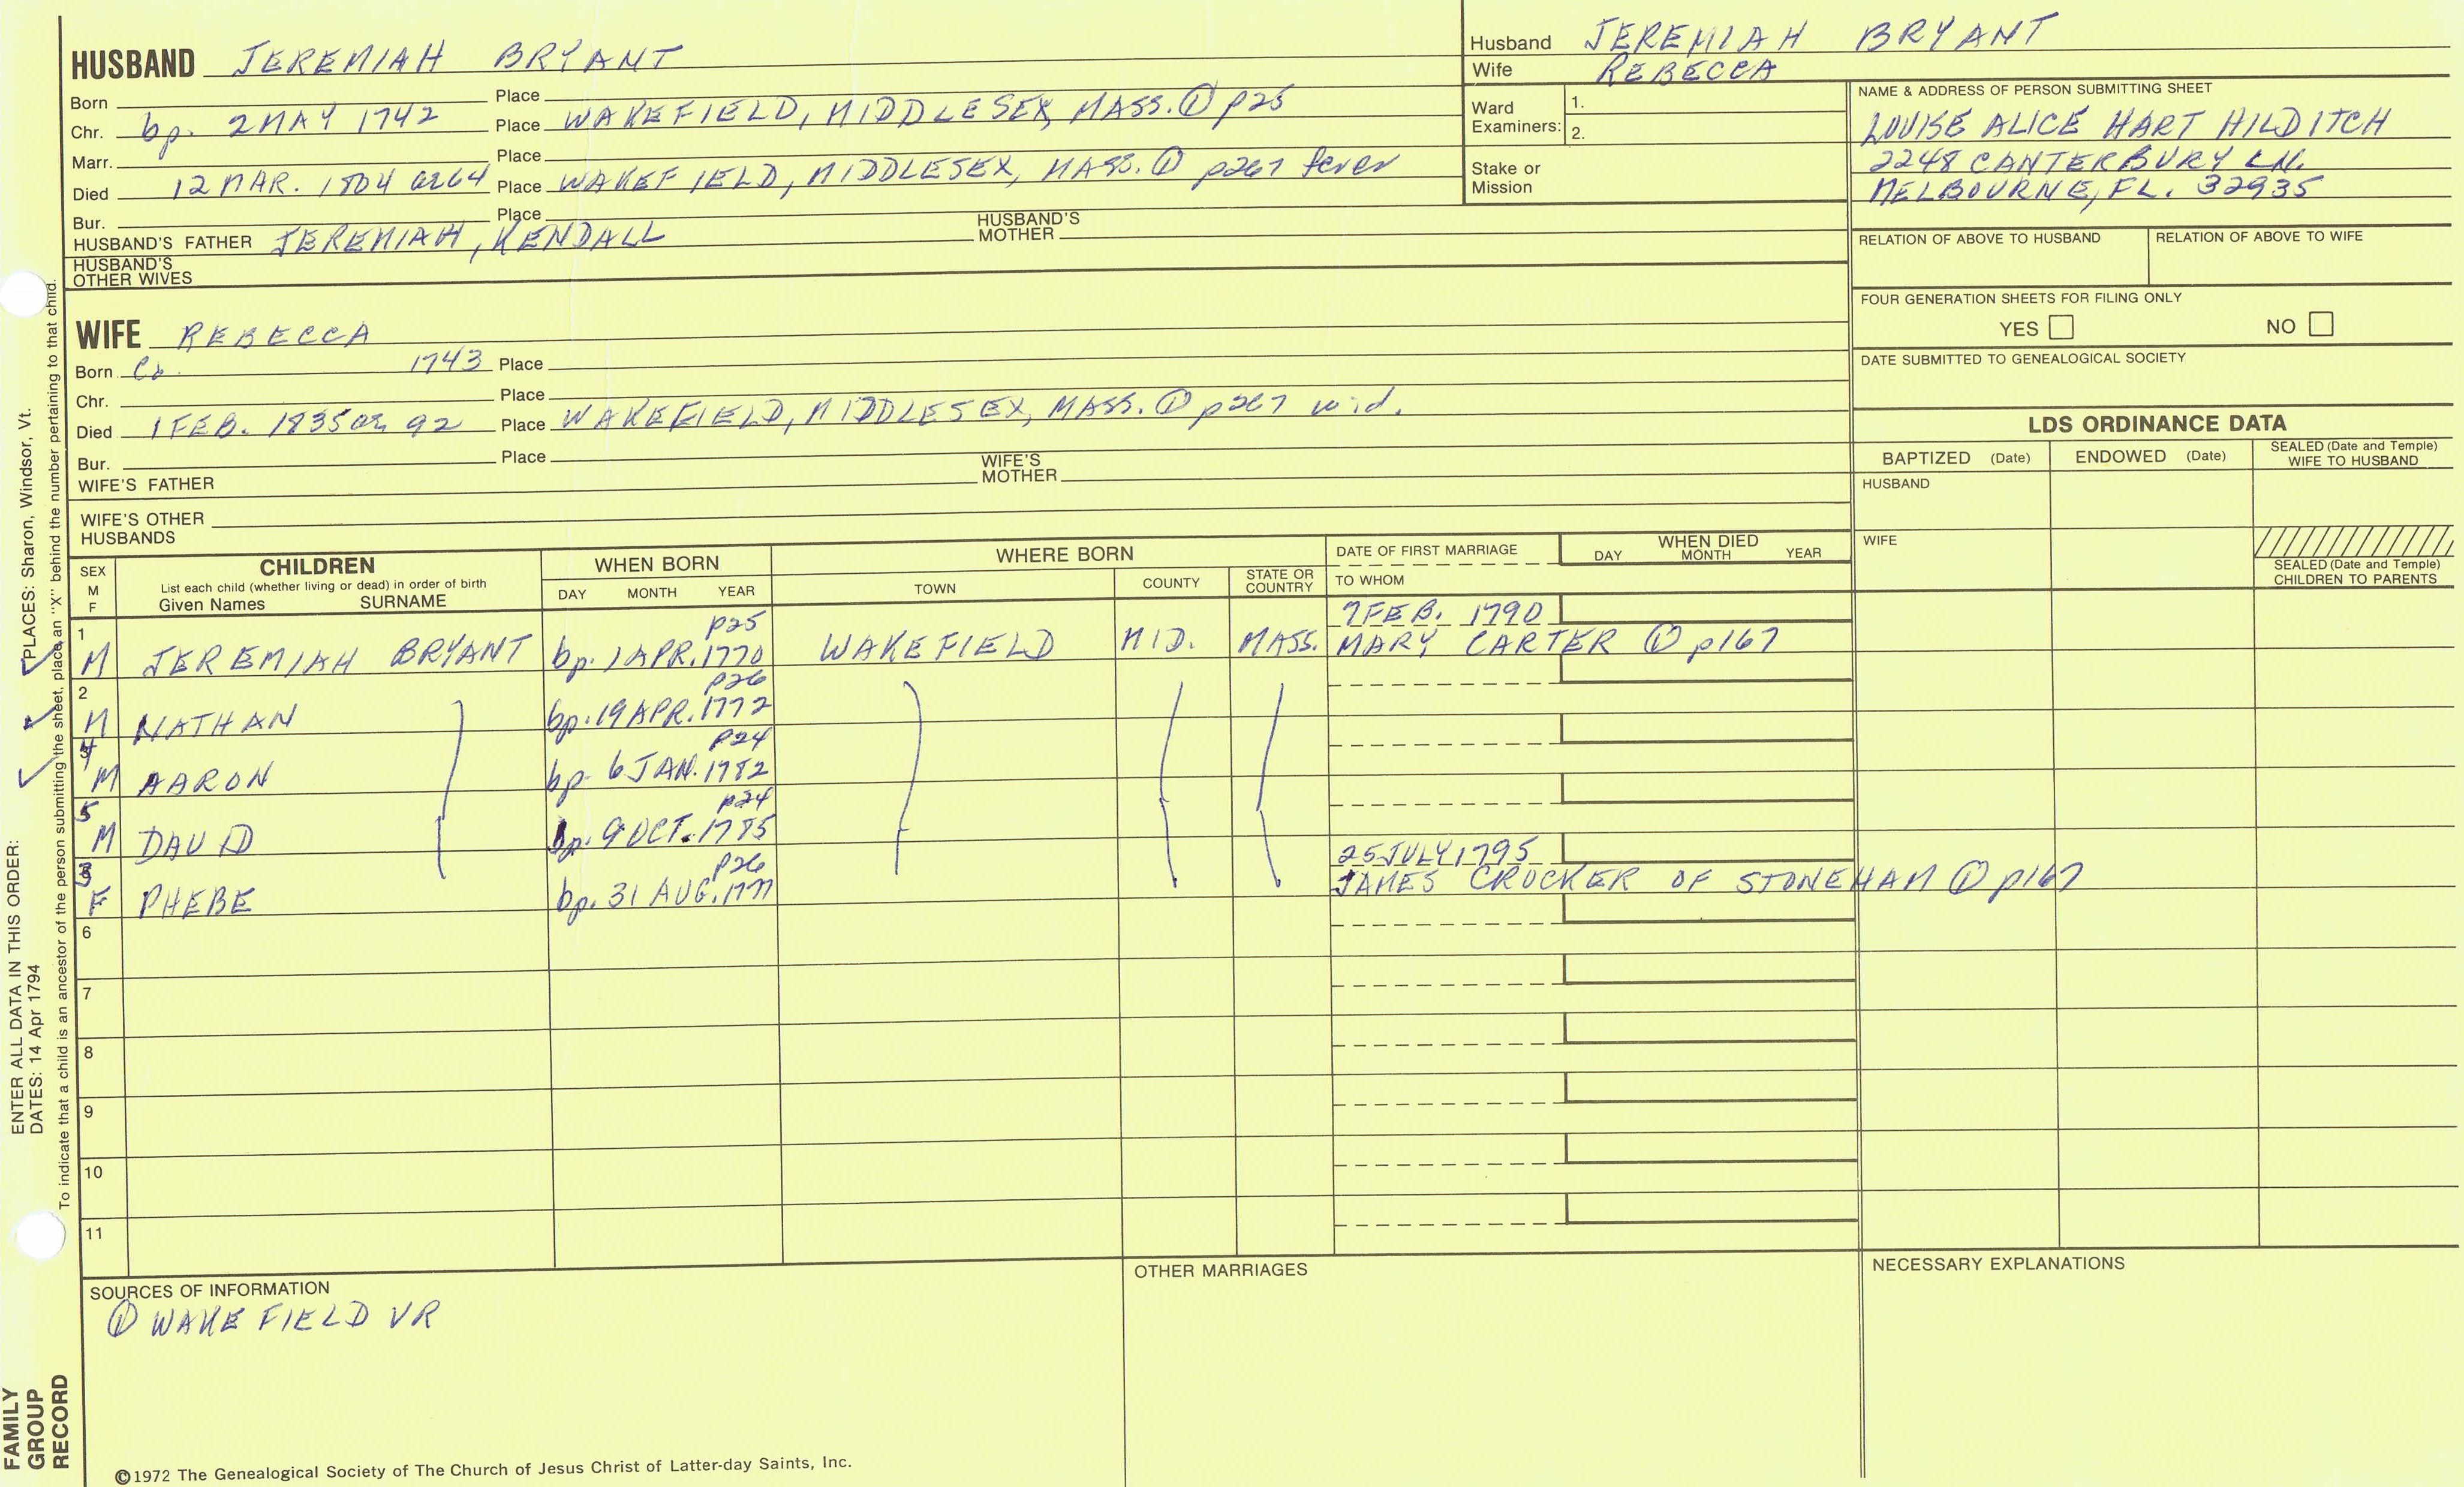 HUSBAND JEREMIAH BRYANT
Born Place
Chr. bp. 2 MAY 1742 Place WAKEFIELD, MIDDLESEX, MASS. ① p25
Marr. Place
Died 12 MAR. 1804 ae 64 Place WAKEFIELD, MIDDLESEX, MASS. ① p267 fever
Bur. Place
HUSBAND'S FATHER JEREMIAH, KENDALL HUSBAND'S MOTHER
HUSBAND'S OTHER WIVES
Husband JEREMIAH BRYANT
Wife REBECCA
Ward Examiners: 1.
2.
Stake or Mission
NAME & ADDRESS OF PERSON SUBMITTING SHEET
LOUISE ALICE HART HILDITCH
2248 CANTERBURY LN.
MELBOURNE, FL. 32935
RELATION OF ABOVE TO HUSBAND RELATION OF ABOVE TO WIFE
FOUR GENERATION SHEETS FOR FILING ONLY
YES NO
DATE SUBMITTED TO GENEALOGICAL SOCIETY
WIFE REBECCA
Born Ca. 1743 Place
Chr. Place
Died 1 FEB. 1835 ae 92 Place WAKEFIELD, MIDDLESEX, MASS. ① p267 wid.
Bur. Place
WIFE'S FATHER WIFE'S MOTHER
WIFE'S OTHER HUSBANDS
LDS ORDINANCE DATA
BAPTIZED (Date) ENDOWED (Date) SEALED (Date and Temple) WIFE TO HUSBAND
HUSBAND
WIFE
SEALED (Date and Temple) CHILDREN TO PARENTS
SEX M F
CHILDREN
List each child (whether living or dead) in order of birth
Given Names SURNAME
WHEN BORN
DAY MONTH YEAR
WHERE BORN
TOWN COUNTY STATE OR COUNTRY
DATE OF FIRST MARRIAGE
TO WHOM
WHEN DIED
DAY MONTH YEAR
1 p25 7 FEB. 1790
M JEREMIAH BRYANT bp. 1 APR. 1770 WAKEFIELD MID. MASS. MARY CARTER ① p167
2 p26
M NATHAN bp. 19 APR. 1772
4 p24
M AARON bp. 6 JAN. 1782
5 p24
M DAVID bp. 9 OCT. 1785
3 p26 25 JULY 1795
F PHEBE bp. 31 AUG. 1777 JAMES CROCKER OF STONEHAM ① p167
6
7
8
9
10
11
SOURCES OF INFORMATION
① WAKEFIELD VR
OTHER MARRIAGES
NECESSARY EXPLANATIONS
©1972 The Genealogical Society of The Church of Jesus Christ of Latter-day Saints, Inc.
ENTER ALL DATA IN THIS ORDER: PLACES: Sharon, Windsor, Vt.
DATES: 14 Apr 1794
To indicate that a child is an ancestor of the person submitting the sheet, place an "X" behind the number pertaining to that child.
FAMILY
GROUP
RECORD